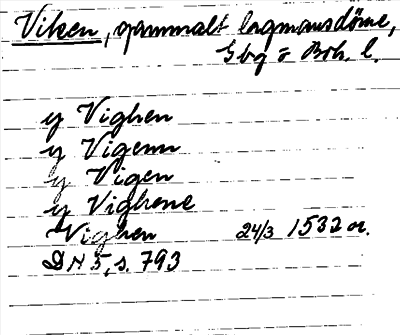 Viken, gammalt lagmansdöme,
Gbg o Boh. l.
y Vighen
y Vigenn
y Vigen
y Vighene
Vighen 24/3 1532 or.
DN 5, s. 793